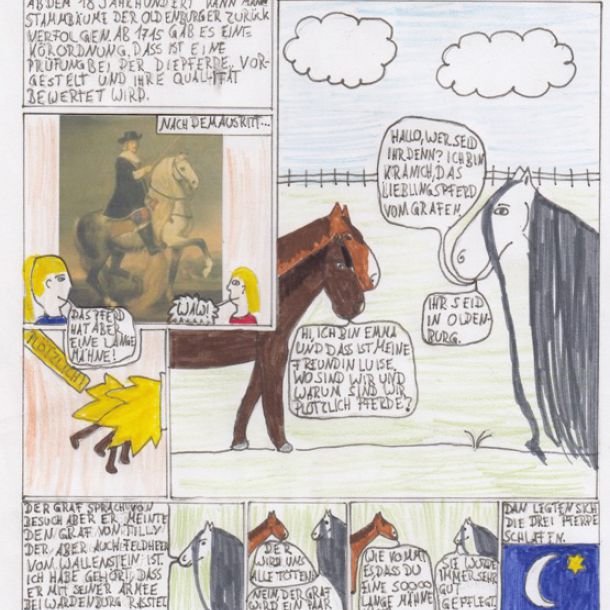 AB DEM 18 JAHRHUNDERT KANN MAN
STAMMBÄUME DER OLDENBURGER ZURÜCK
VERFOLGEN. AB 1715 GAB ES EINE
KÖRORDNUNG, DASS IST EINE
PRÜFUNG BEI DER DIE PFERDE VOR-
GESTELT UND IHRE QUALITÄT
BEWERTET WIRD.
NACH DEM AUSRITT...
DAS PFERD
HAT ABER
EINE LANGE
MÄHNE!
WAU!
PLÖTZLICH!
HALLO, WER SEID
IHR DENN? ICH BIN
KRANICH, DAS
LIEBLINGSPFERD
VOM GRAFEN.
IHR SEID
IN OLDEN-
BURG.
HI, ICH BIN EMMA
UND DASS IST MEINE
FREUNDIN LUISE.
WO SIND WIR UND
WARUM SIND WIR
PLÖTZLICH PFERDE?
DER GRAF SPRACH VON
BESUCH ABER ER MEINTE
DEN GRAF VON TILLY
DER ABER AUCH FELDHERR
VON WALLENSTEIN IST.
ICH HABE GEHÖRT, DASS
ER MIT SEINER ARMEE
BEI WARDENBURG RASTET.
DER
WIRD UNS
ALLE TÖTEN!
NEIN, DER GRAF
WIRD EIN PAAR
WIE KOMMT
ES, DASS DU
EINE SOOOO
LANGE MÄHNE
SIE WURDE
IMMER SEHR
GUT
GEPFLEGT.
DAN LEGTEN SICH
DIE DREI PFERDE
SCHLAFEN.